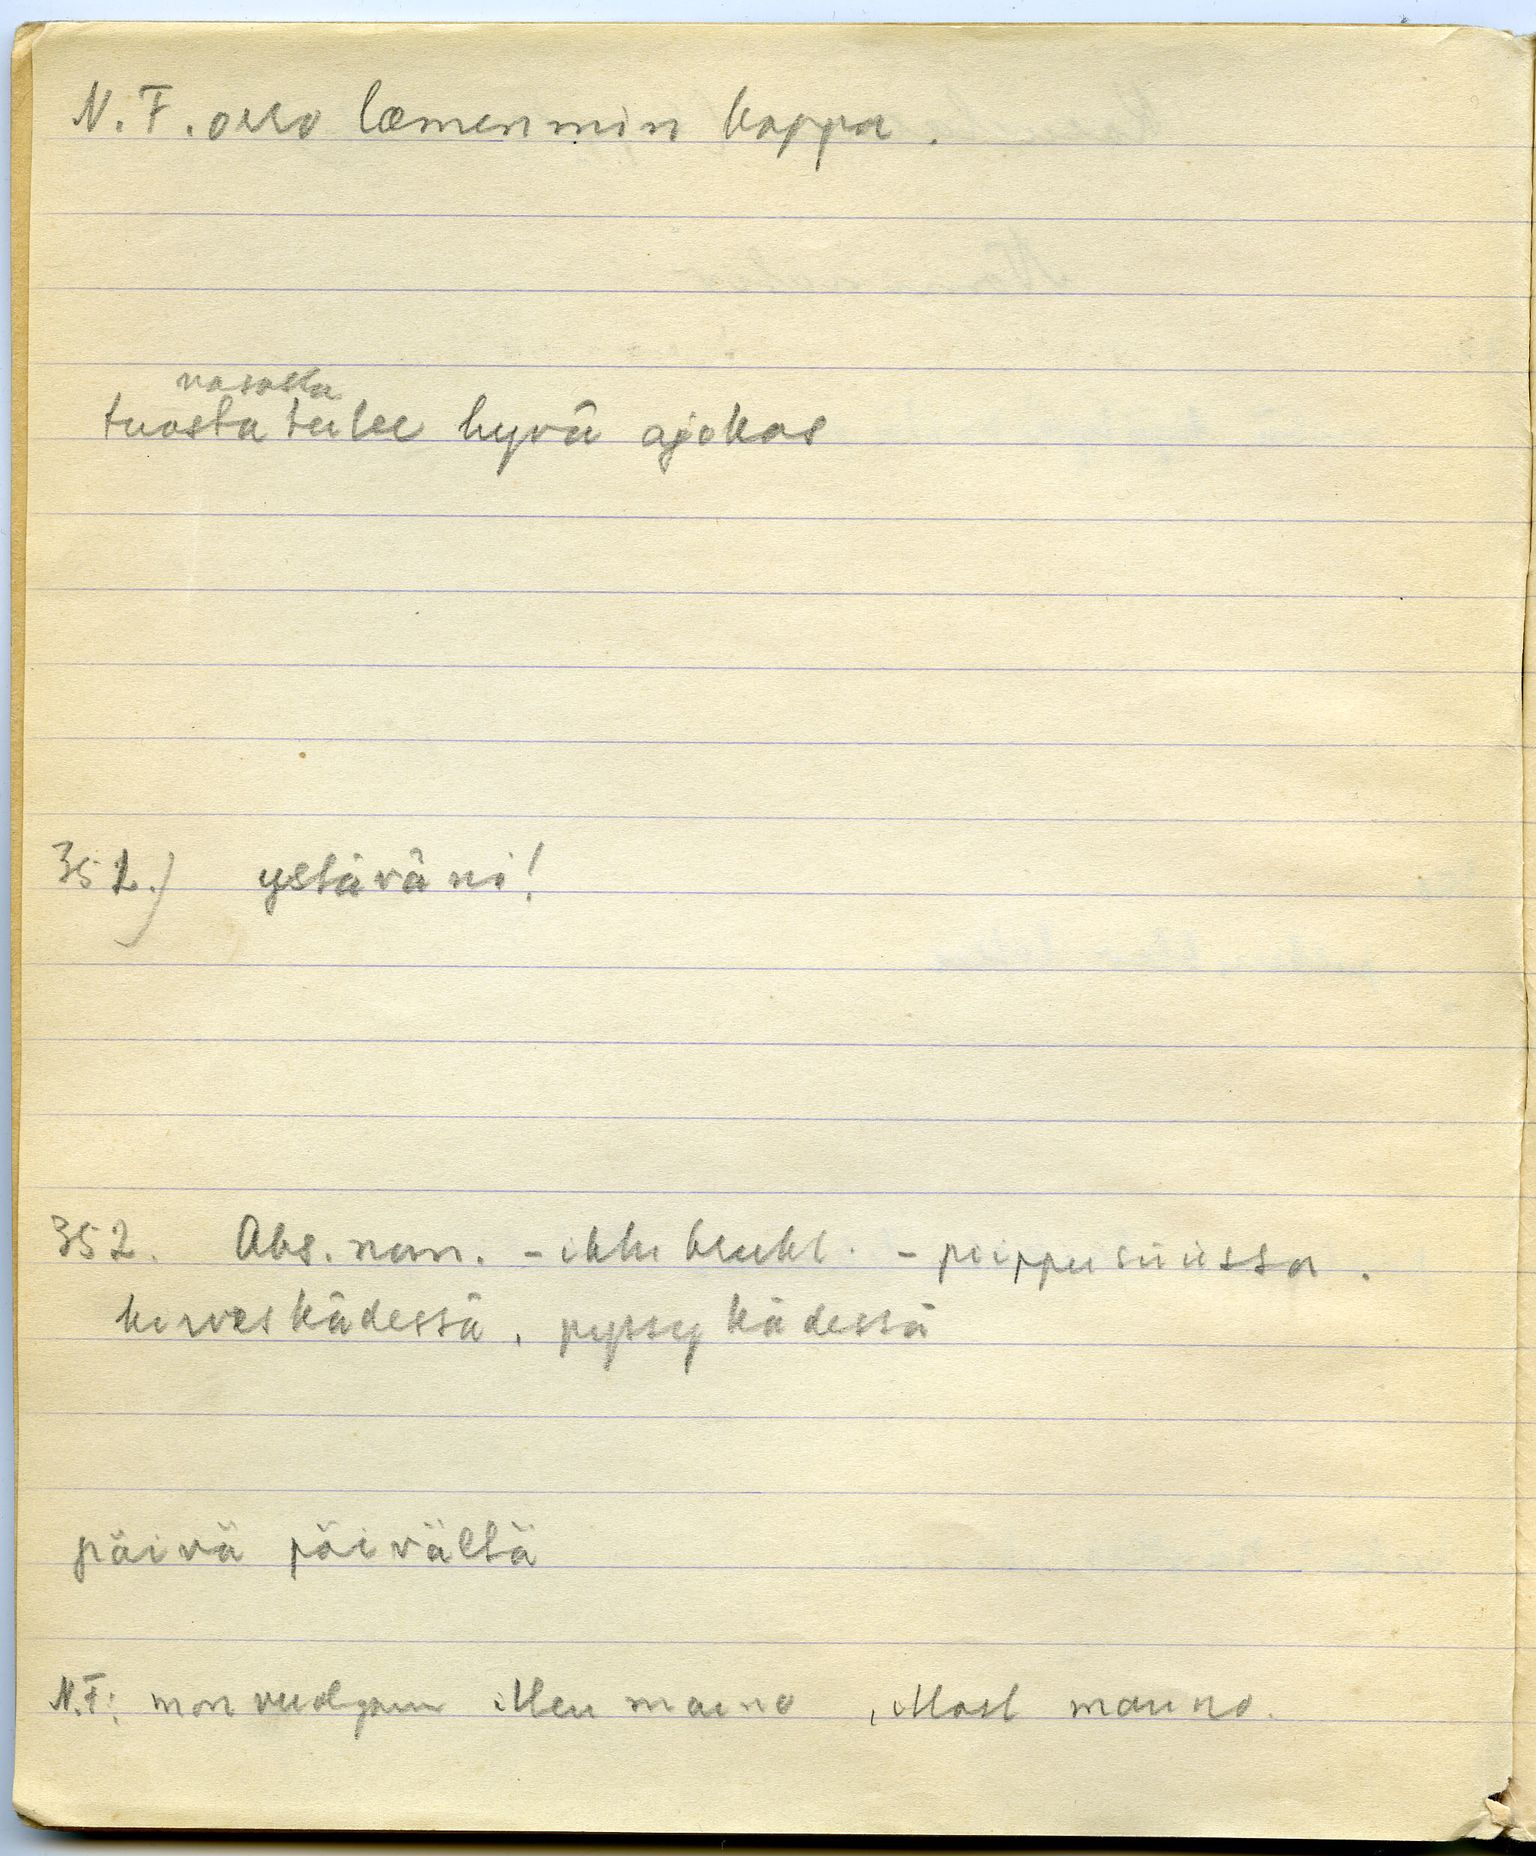 N. F. orro læmenmin kappa.
vasasta
tuosta tulee hyvä ajokas
352.) ystäväni!
352. Abs. nom. - - piippu suussa.
kirves kädessä, pyssy kädessä
päivä päivältä
N.F: mon vuolgam manno , manno.